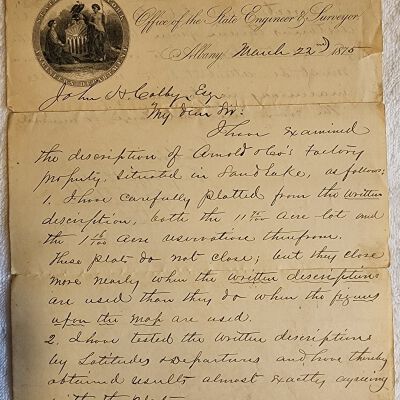 Office of the State Engineer & Surveyor
Albany, March 22nd 1875
John H Colby Esq
My dear Sir:
I have examined
the description of Arnold & Co's factory
property, situated in Sandlake, as follows:
1. I have carefully platted from the written
description, both the 11 acre lot and
the 1 acre reservation therefrom.
These plats do not close; but they close
more nearly when the written descriptions
are used than they do when the figures
upon the map are used.
2. I have tested the written descriptions
by Latitudes & Departures and have thereby
obtained results almost exactly agreeing
with the plats